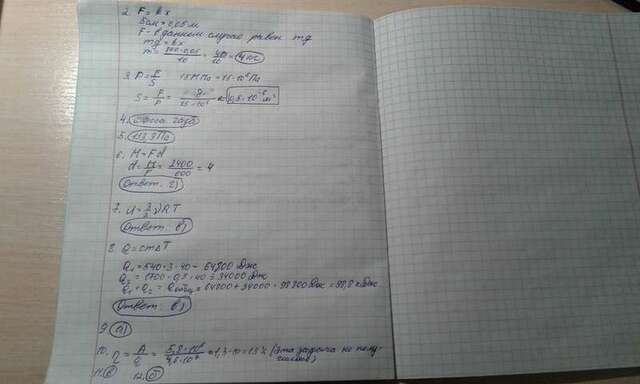 2. F = kx
5см = 0,05м
F - в данном случае равен mg
mg = kx
m = 800·0,05/10 = 40/10 = 4кг
3. P = F/S 15МПа = 15·10⁶Па
S = F/P =
4.
5.
6. M = Fd
d = M/F = 2400/600 = 4
Ответ: г)
7. U = 3/2 νRT
Ответ: в)
8. Q = cmΔT
Q₁ = 540·3·40 = 64800 Дж
Q₂ = 1700·0,5·40 = 34000 Дж
Q₁ + Q₂ = Qобщ = 64800 + 34000 = 98800 Дж = 98,8 кДж
Ответ: в)
9. а)
10. η = A/Q = (эта задача не получилась)
11. в 12. б